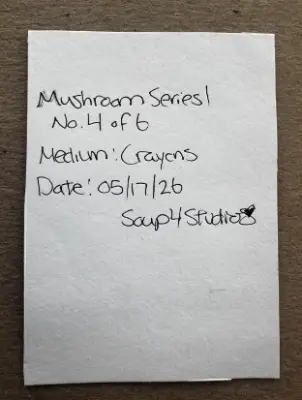 Mushroom Series 1
No. 4 of 6
Medium: Crayons
Date: 05/17/26
Soup4Studio